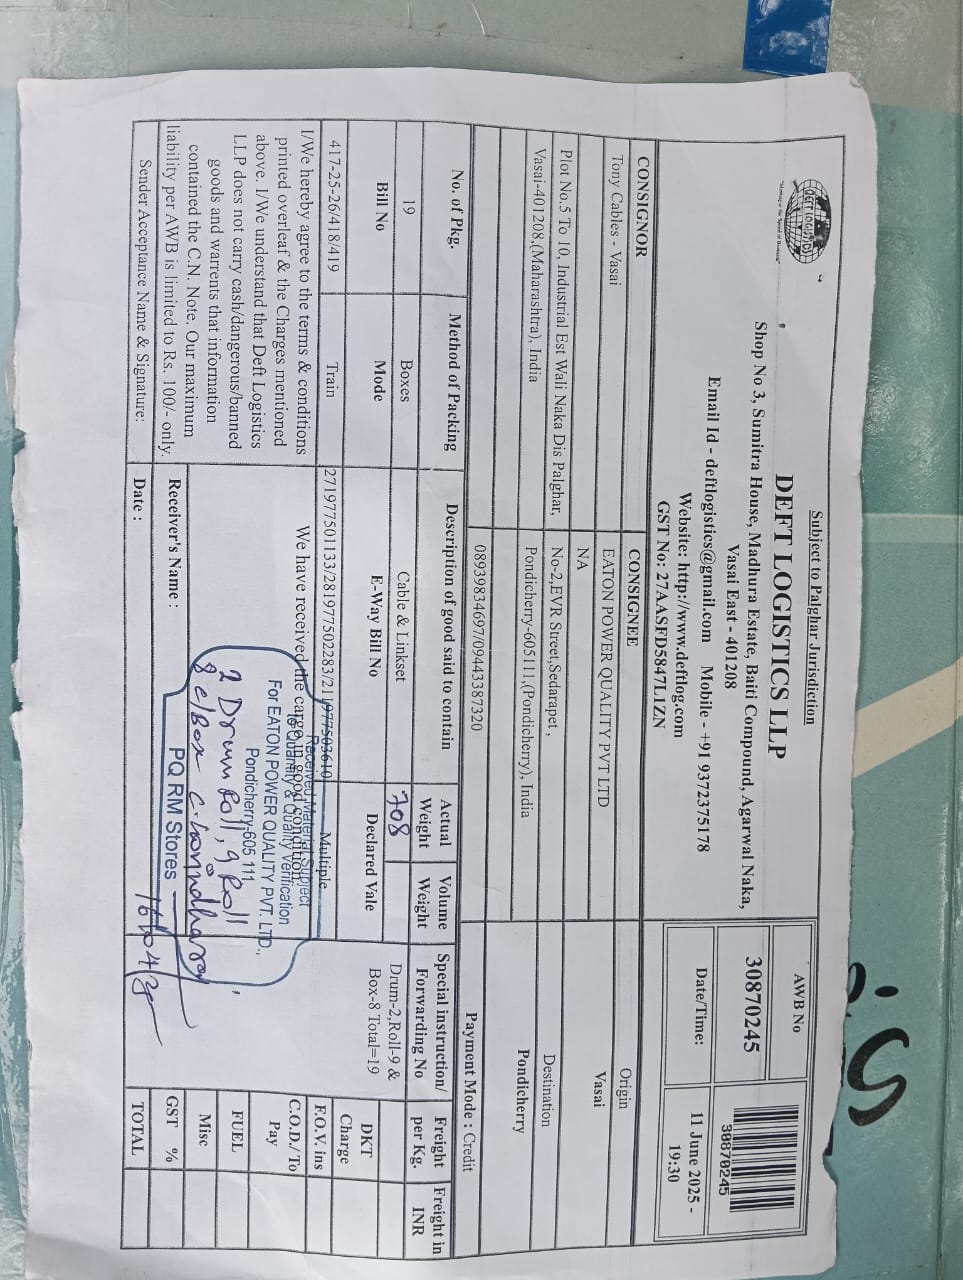 Subject to Palghar Jurisdiction
DEFT LOGISTICS LLP
Shop No 3, Sumitra House, Madhura Estate, Baiti Compound, Agarwal Naka,
Vasai East - 401208
Email Id - deftlogistics@gmail.com Mobile - +91 9372375178
Website: http://www.deftlog.com
GST No: 27AASFD5847L1ZN
AWB No
30870245
30870245
Date/Time:
11 June 2025 -
19:30
CONSIGNOR
Tony Cables - Vasai
Plot No.5 To 10, Industrial Est Wali Naka Dis Palghar,
Vasai-401208,(Maharashtra), India
CONSIGNEE
EATON POWER QUALITY PVT LTD
NA
No-2,EVR Street,Sedarapet ,
Pondicherry-605111,(Pondicherry), India
08939834697/09443387320
Origin
Vasai
Destination
Pondicherry
Payment Mode : Credit
No. of Pkg.
Method of Packing
Description of good said to contain
Actual
Weight
Volume
Weight
Special instruction/
Forwarding No
Freight
per Kg.
Freight in
INR
19
Boxes
Cable & Linkset
708
Drum-2,Roll-9 &
Box-8 Total=19
Bill No
Mode
E-Way Bill No
Declared Vale
417-25-26/418/419
Train
271977501133/281977502283/211977503610
Multiple
DKT
Charge
F.O.V. ins
C.O.D./ To
Pay
FUEL
Misc
GST %
TOTAL
I/We hereby agree to the terms & conditions
printed overleaf & the Charges mentioned
above. I/We understand that Deft Logistics
LLP does not carry cash/dangerous/banned
goods and warrents that information
contained the C.N. Note. Our maximum
liability per AWB is limited to Rs. 100/- only.
Sender Acceptance Name & Signature:
We have received the cargo in good condition.
Received Material Subject
To Quantity & Quality Verification
For EATON POWER QUALITY PVT. LTD.,
Pondicherry-605 111
2 Drum Roll, 9 Roll,
8 c/Box
PQ RM Stores
Receiver's Name :
Date :